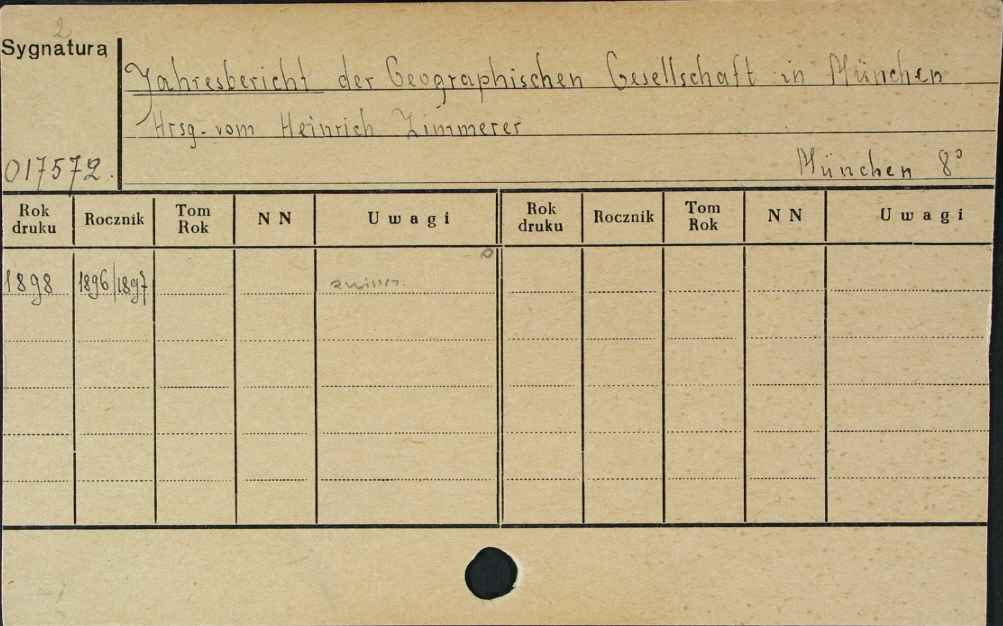 2
Sygnatura
Jahresbericht der Geographischen Gesellschaft in München
Hrsg. vom Heinrich Zimmerer
017572.
München 8°
Rok druku Rocznik Tom Rok N N Uwagi Rok druku Rocznik Tom Rok N N Uwagi
1898 1896/1897